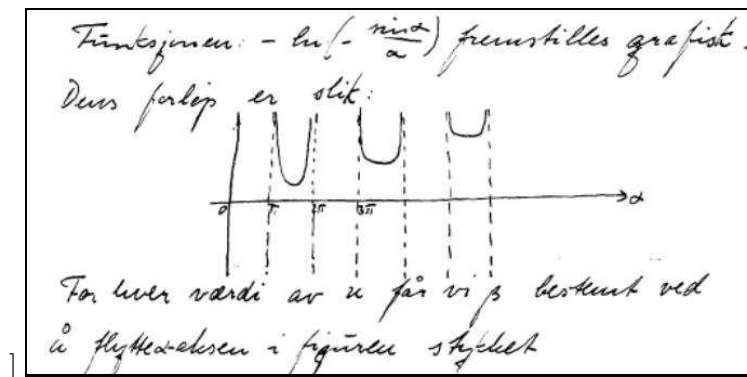 Funksjonen: - ln(- sinα/α) fremstilles grafisk.
Dens forløp er slik:
0 π 2π 3π α
For hver værdi av u får vi β bestemt ved
å flytte α-aksen i figuren stykket
]